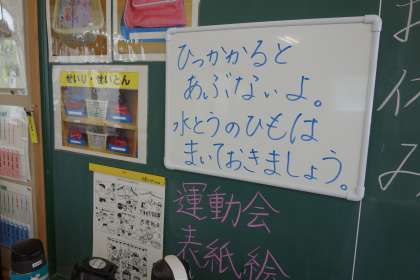 ひっかかると
あぶないよ。
水とうのひもは
まいておきましょう。
せいり・せいとん
運動会
表紙絵
休み